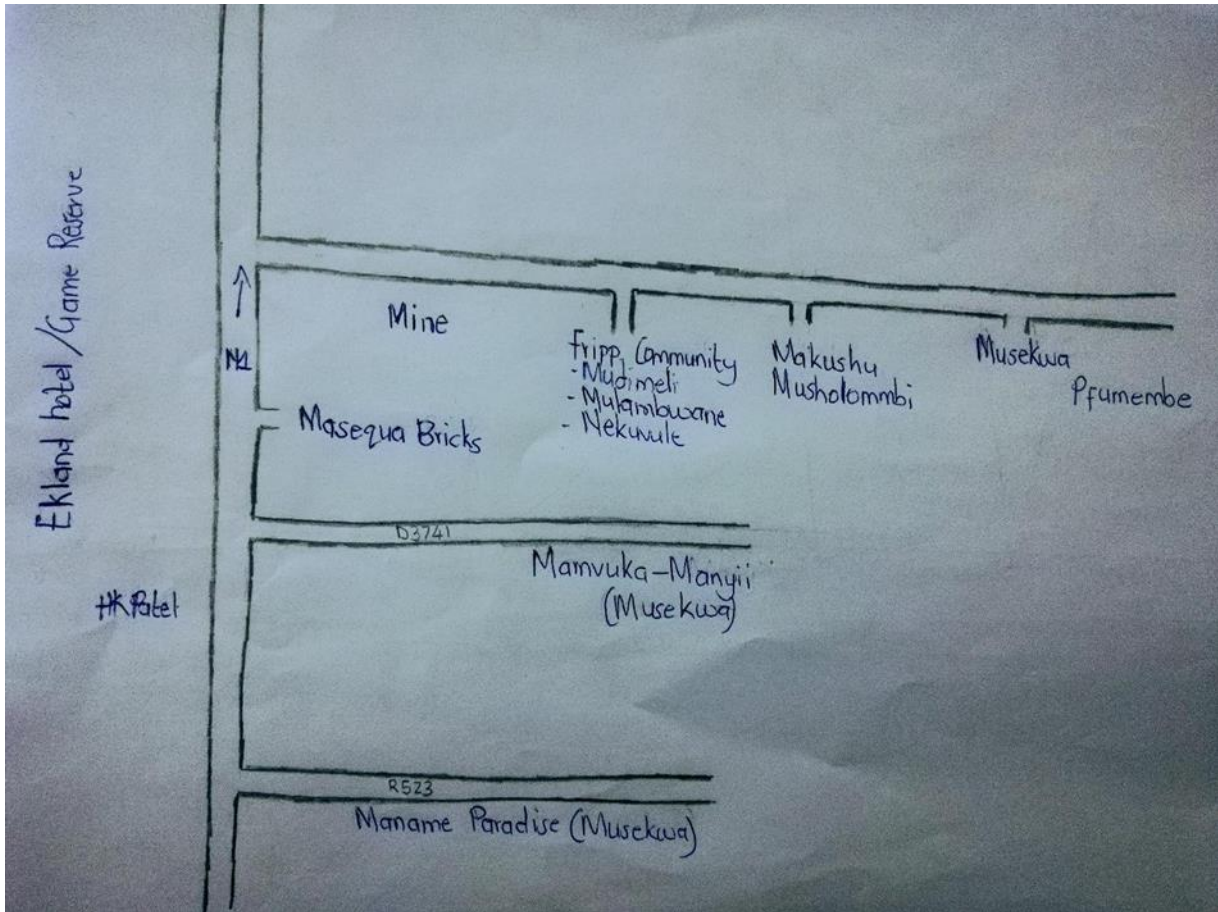 Ekland hotel /Game Reserve
N1
Mine
Fripp Community
- Mudimeli
- Mulambwane
- Nekuvule
Makushu
Musholommbi
Musekwa
Pfumembe
Masequa Bricks
D3741
Mamvuka-Manyii
(Musekwa)
HK Patel
R523
Maname Paradise (Musekwa)